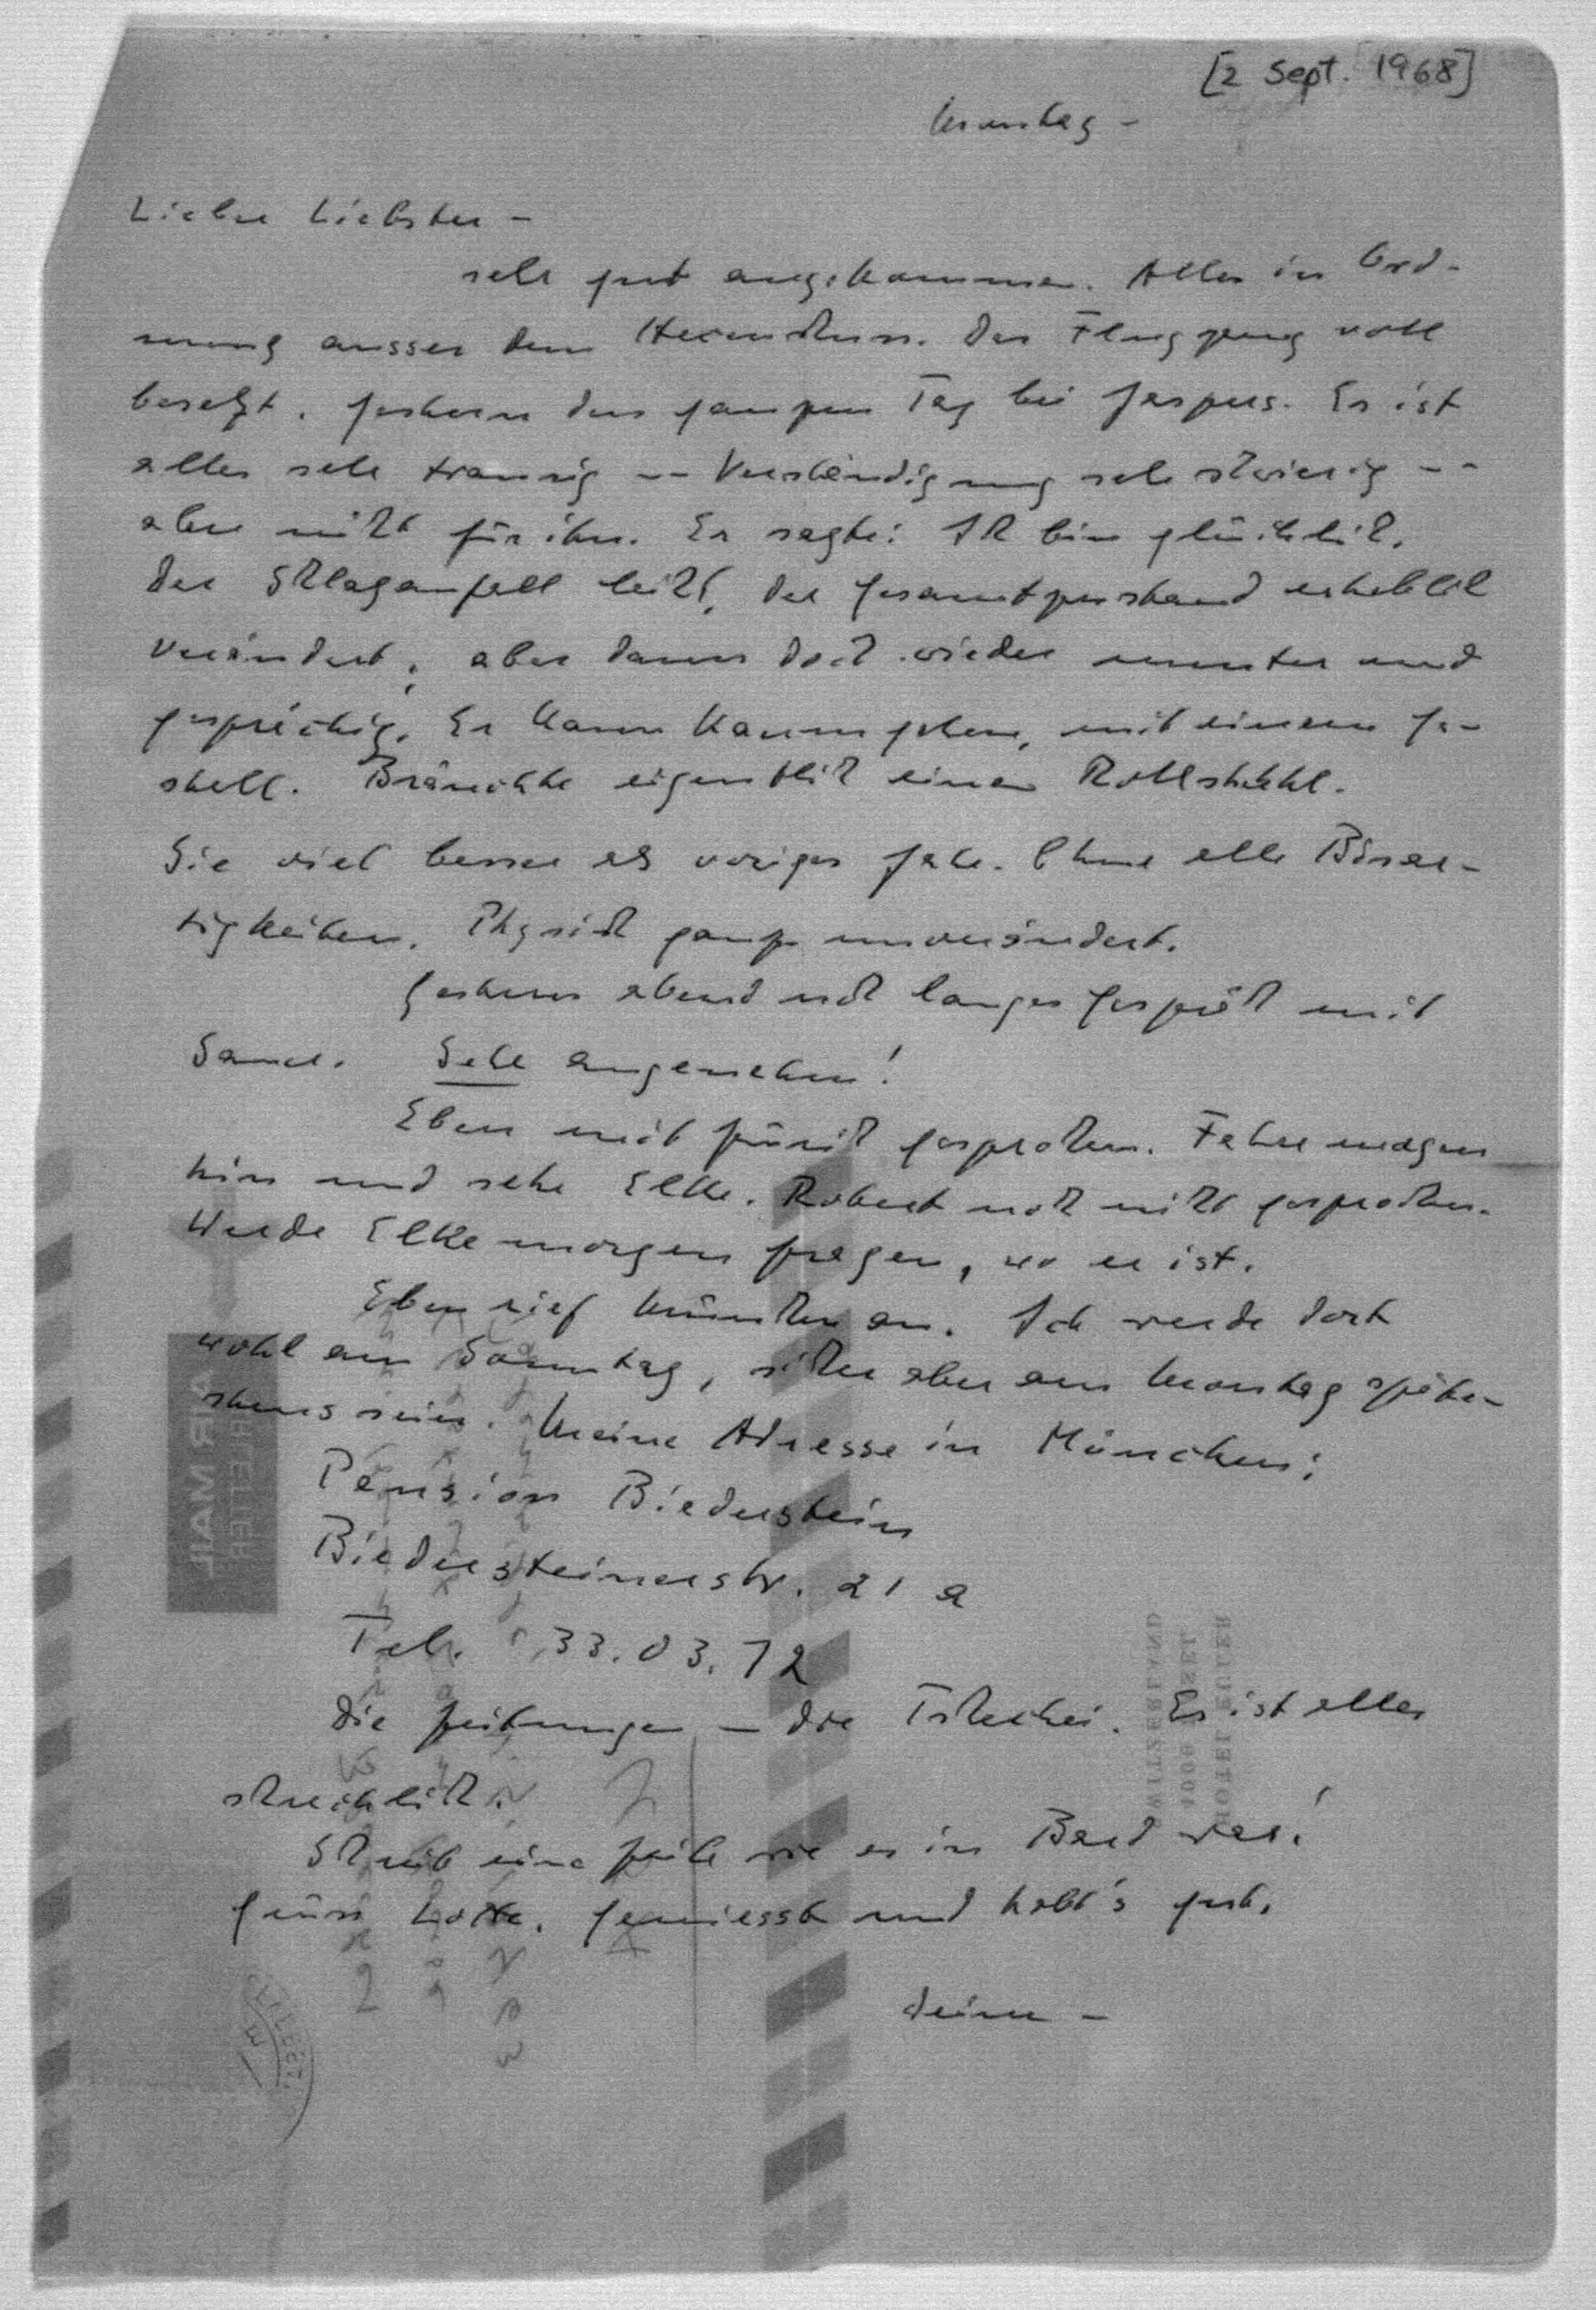 [2 Sept. 1968]
Montag –
Lieber Liebster –
sehr gut angekommen. Alles in Ord-
nung ausser dem Herumstehn. Das Flugzeug voll
besetzt. Gestern den ganzen Tag bei Jaspers. Es ist
alles sehr traurig -- Verständigung sehr schwierig --
aber nicht für ihn. Er sagte: Ich bin glücklich.
Der Schlaganfall leicht, der Gesamtzustand erheblich
verändert; aber dann doch wieder munter und
gesprächig. Er kann kaum gehen, mit einem Ge-
stell. Bräuchte eigentlich einen Rollstuhl.
Sie viel besser als voriges Jahr. Ohne alle Bösar-
tigkeiten. Physisch ganz unverändert.
Gestern abend noch langes Gespräch mit
Saner. Sehr angenehm!
Eben mit Zürich gesprochen. Fahre morgen
hin und sehe Elke. Robert noch nicht gesprochen.
Werde Elke morgen fragen, wo er ist.
Eben rief München an. Ich werde dort
wohl am Sonntag, sicher aber am Montag späte-
stens sein. Meine Adresse in München:
Pension Biederstein
Biedersteinerstr. 21 a
Tel. 33.03.72
Die Zeitungen – die Tschechei. Es ist alles
schrecklich.
Schreib eine Zeile wie es in Bard war!
Grüss Lotte. Geniesst und habt's gut.
Deine –
AIR MAIL
AEROLETTER
HOTEL EULER
4000 BASEL
SWITZERLAND